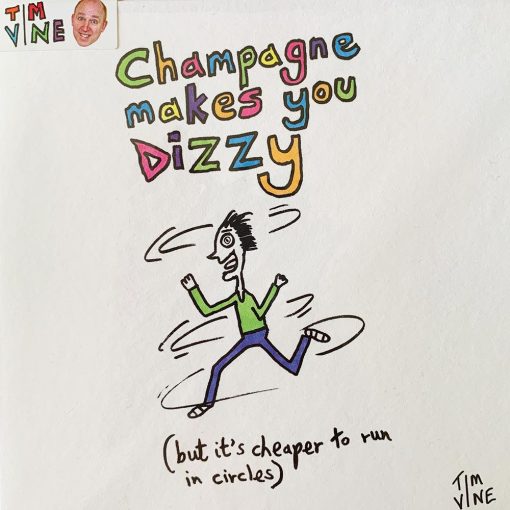 TIM
VINE
Champagne
makes you
Dizzy
(but it's cheaper to run
in circles)
TIM
VINE